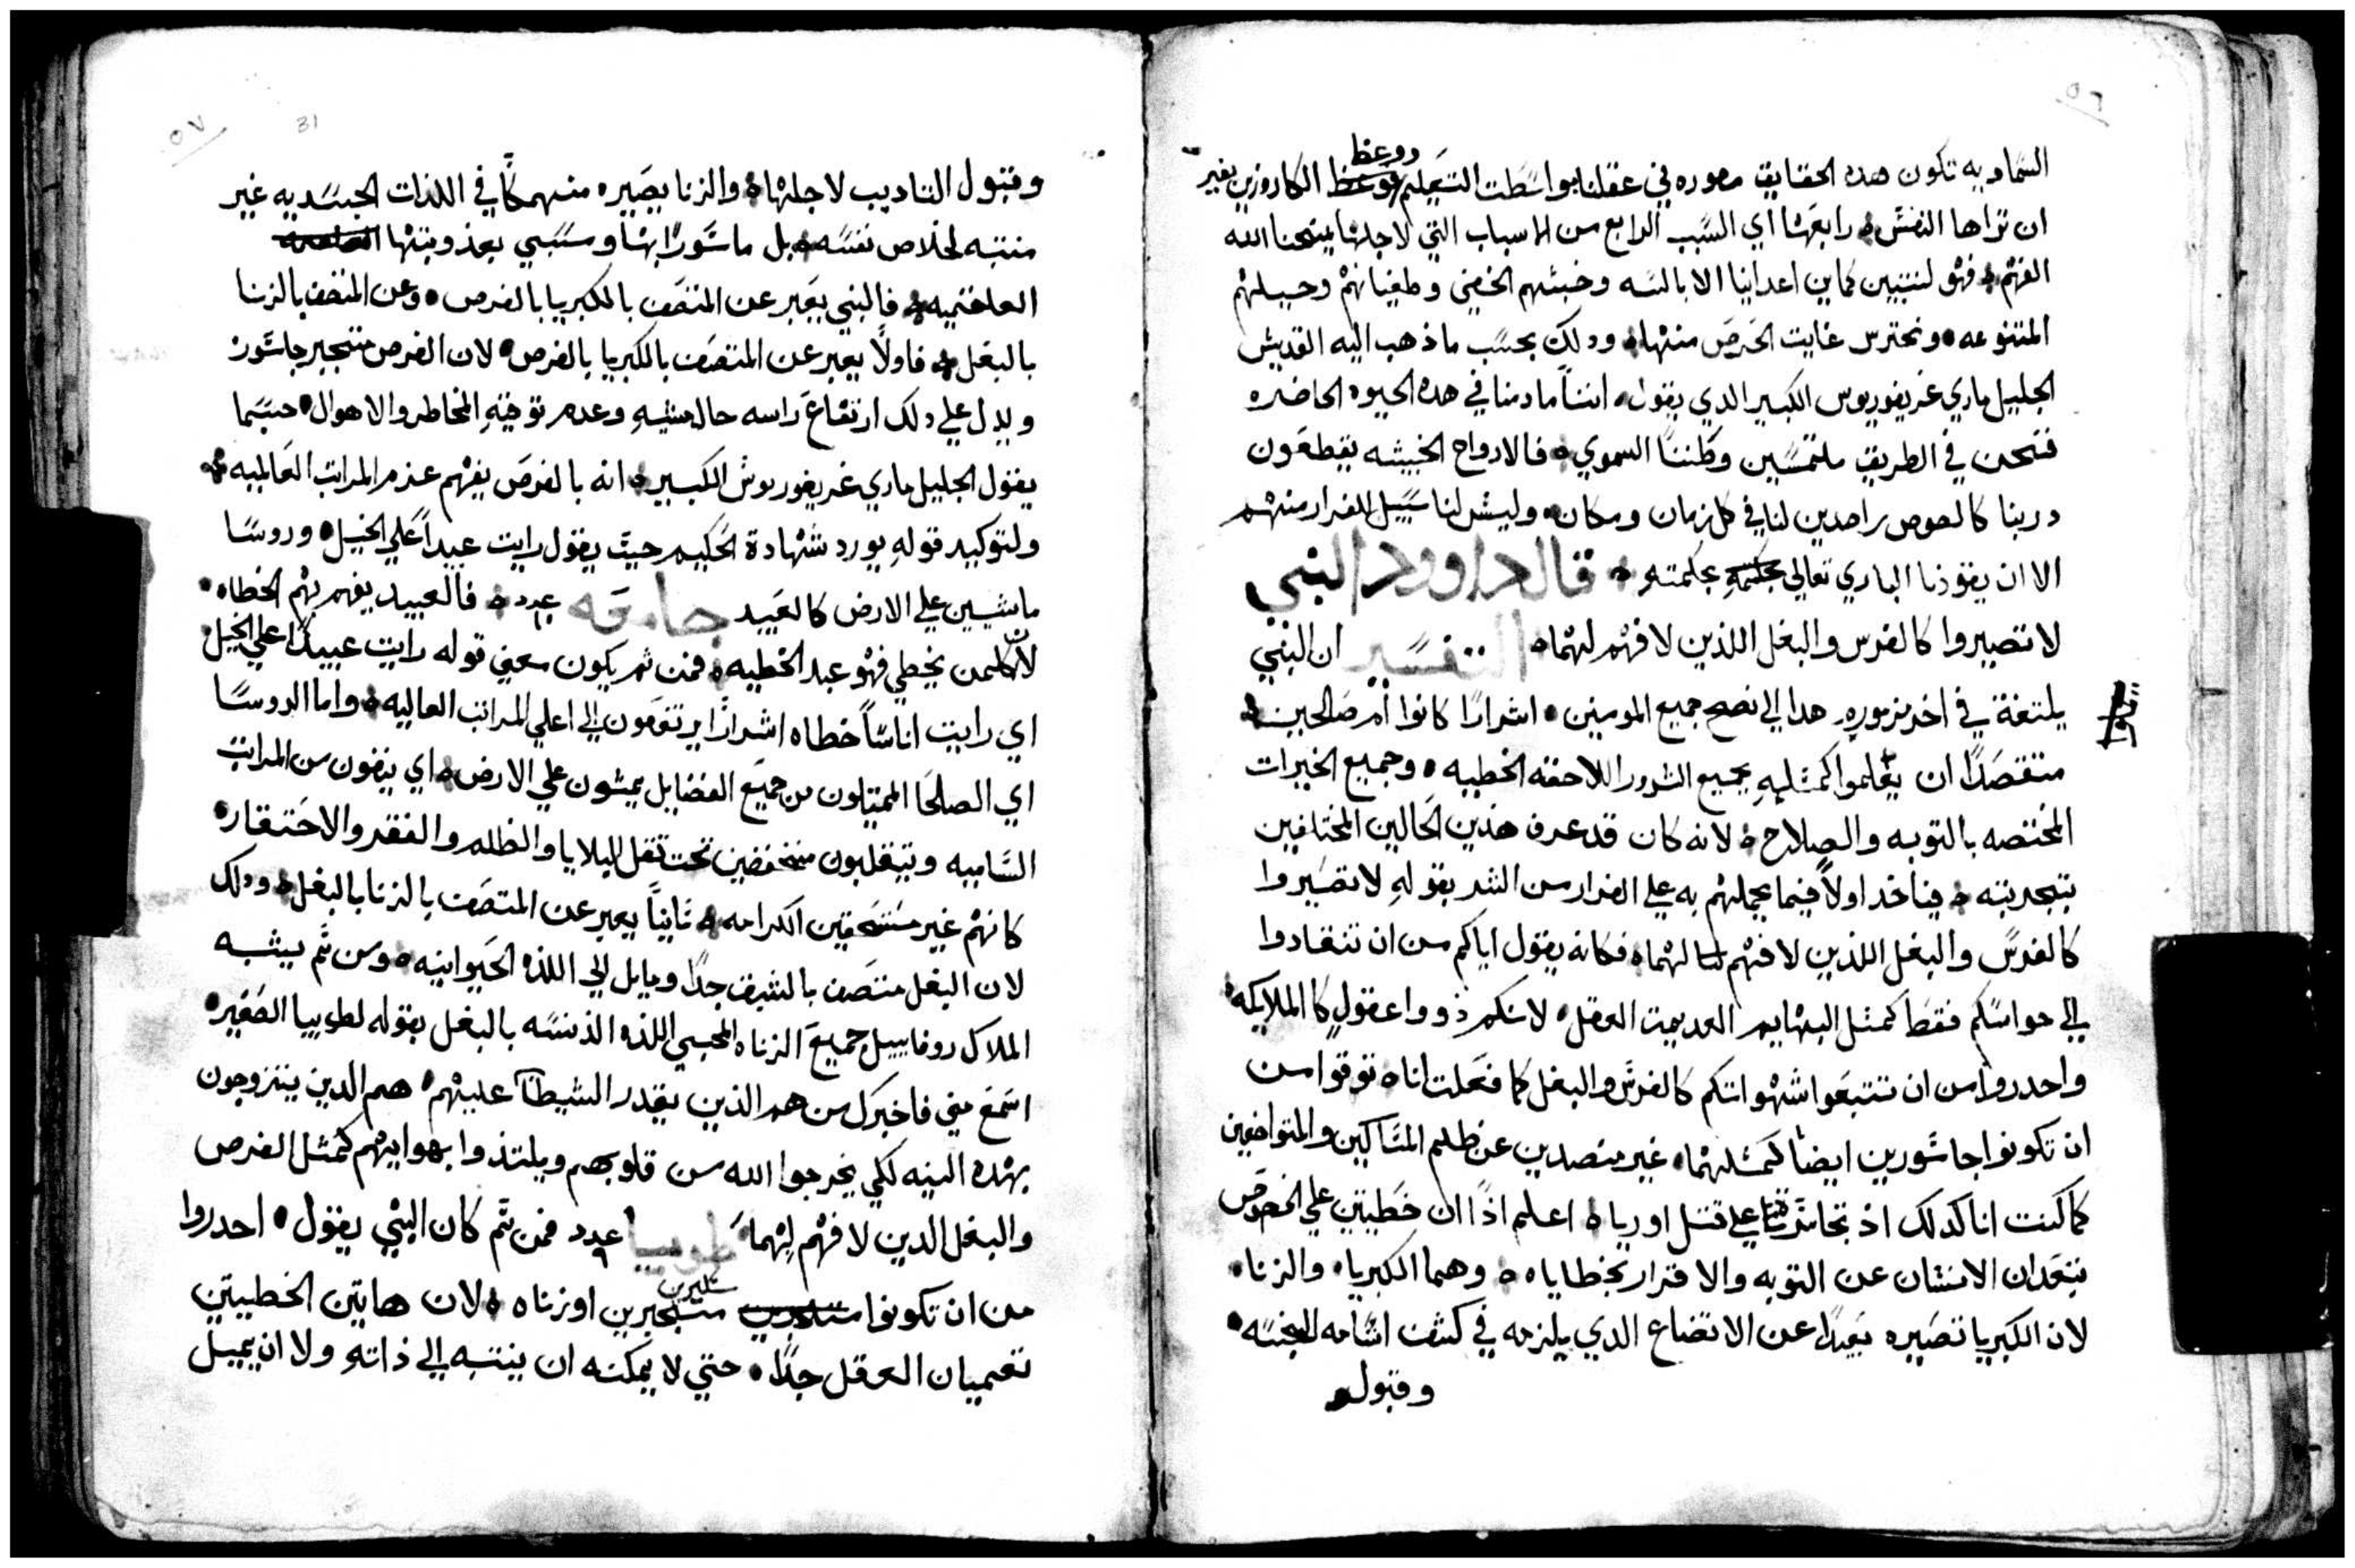 ٥٦
السماويه تكون هده الحقايق مصوره في عقلنا بواسطت التعليم ووعظ الكاروزين بغير
ان تراها النفس ۞ رابعها اي السبب الرابع من الاسباب التي لاجلها يمنحنا الله
الفهم ۞ فهو لنتبين كماين اعداينا الابالسه وخبثهم الخفي وطغيانهم وحيلهم
المتنوعه • ونحترس غايت الحرص منها ۞ ودلك بحسب ما ذهب اليه القديس
الجليل ماري غريغوريوس الكبير الدي يقول • اننا ما دمنا في هده الحيوه الحاضره
فنحن في الطريق ملتمسين وطننا السموي ۞ فالارواح الخبيثه يقطعون
دربنا كالصوص راصدين لنا في كل زمان ومكان • وليس لنا سبيل للفرار منهم
الا ان ينقذنا الباري تعالي بحكمته ۞ قال داوود النبي
لا تصيروا كالفرس والبغل اللذين لا فهم لهما ۞ التفسير ان النبي
يلتفة في اخر مزموره هدا الي نصح جميع المومنين • اشرارا كانوا ام صالحين ۞
متقصدا ان يعلموا كمثله جميع الشرور اللاحقه الخطيه • وجميع الخيرات
المختصه بالتوبه والصلاح ۞ لانه كان قد عرف هذين الحالين المختلفين
بتجربته ۞ فياخد اولا فيما يحملهم به علي الفرار من الشر بقوله لا تصيروا
كالفرس والبغل اللذين لا فهم لهما ۞ فكانه يقول اياكم من ان تنقادوا
الي حواسكم فقط كمثل البهايم العديمت العقل • لانكم ذووا عقول كالملايكه •
واحدروا من ان تتبعوا شهواتكم كالفرس والبغل كما فعلت انا ۞ توقوا من
ان تكونوا جاسورين ايضا كمثلهما • غير منصدين عن ظلم المساكين والمتواضعين
كما كنت انا كدلك اذ تجاسرت علي قتل اوريا ۞ اعلم اذا ان خطيتين علي الخصوص
تبعدان الانسان عن التوبه والاقرار بخطاياه ۞ وهما الكبريا • والزنا •
لان الكبريا تصيره بعيدا عن الاتضاع الدي يلزمه في كشف اثامه النجسه •
وقبول
٥٧
31
وقبول التاديب لاجلها ۞ والزنا يصيره منهمكا في اللذات الجسديه غير
منتبه لخلاص نفسه ۞ بل ماسورا بها ومستبي بعذوبتها
العلقميه ۞ فالنبي يعبر عن المتصف بالكبريا بالفرص • وعن المتصف بالزنا
بالبغل ۞ فاولا يعبر عن المتصف بالكبريا بالفرص • لان الفرص متجبر جاسور
ويدل علي دلك ارتفاع راسه حال مشيه وعدم توقيه المخاطر والاهوال • حسبما
يقول الجليل ماري غريغوريوس الكبير ۞ انه بالفرص يفهم عزم المراتب العالميه ۞
ولتوكيد قوله يورد شهادة الحكيم حيث يقول رايت عبيدا علي الخيل • وروسا
ماشيين علي الارض كالعبيد جامعه عدد ۞ فالعبيد يفهم بهم الخطاه •
لان كلمن يخطي فهو عبد الخطيه ۞ فمن ثم يكون معني قوله رايت عبيدا علي الخيل •
اي رايت اناسا خطاه اشرارا يرتقون الي اعلي المراتب العاليه ۞ واما الروسا
اي الصلحا الممتلون من جميع الفضايل يمشون علي الارض ۞ اي ينفون من المراتب
الساميه ويتقلبون منخفضين تحت ثقل البلايا والظلم والفقر والاحتقار •
كانهم غير مستحقين الكرامه ۞ ثانيا يعبر عن المتصف بالزنا بالبغل ۞ ودلك
لان البغل متصف بالشبق جدا ومايل الي اللذه الحيوانيه ۞ ومن ثم يشبه
الملاك روفاييل جميع الزناه المحبي اللذه الدنسه بالبغل بقوله لطوبيا الصغير •
اسمع مني فاخبرك من هم الذين يقدر الشيطان عليهم • هم الدين يتزوجون
بهده النيه لكي يخرجوا الله من قلوبهم ويلتذوا بهواييهم كمثل الفرص
والبغل الدين لا فهم لهما • طوبيا عدد فمن ثم كان النبي يقول • احدروا
من ان تكونوا متكبرين متجبرين او زناه ۞ لان هاتين الخطيتين
تعميان العقل جدا • حتي لا يمكنه ان ينتبه الي ذاته ولا ان يميل